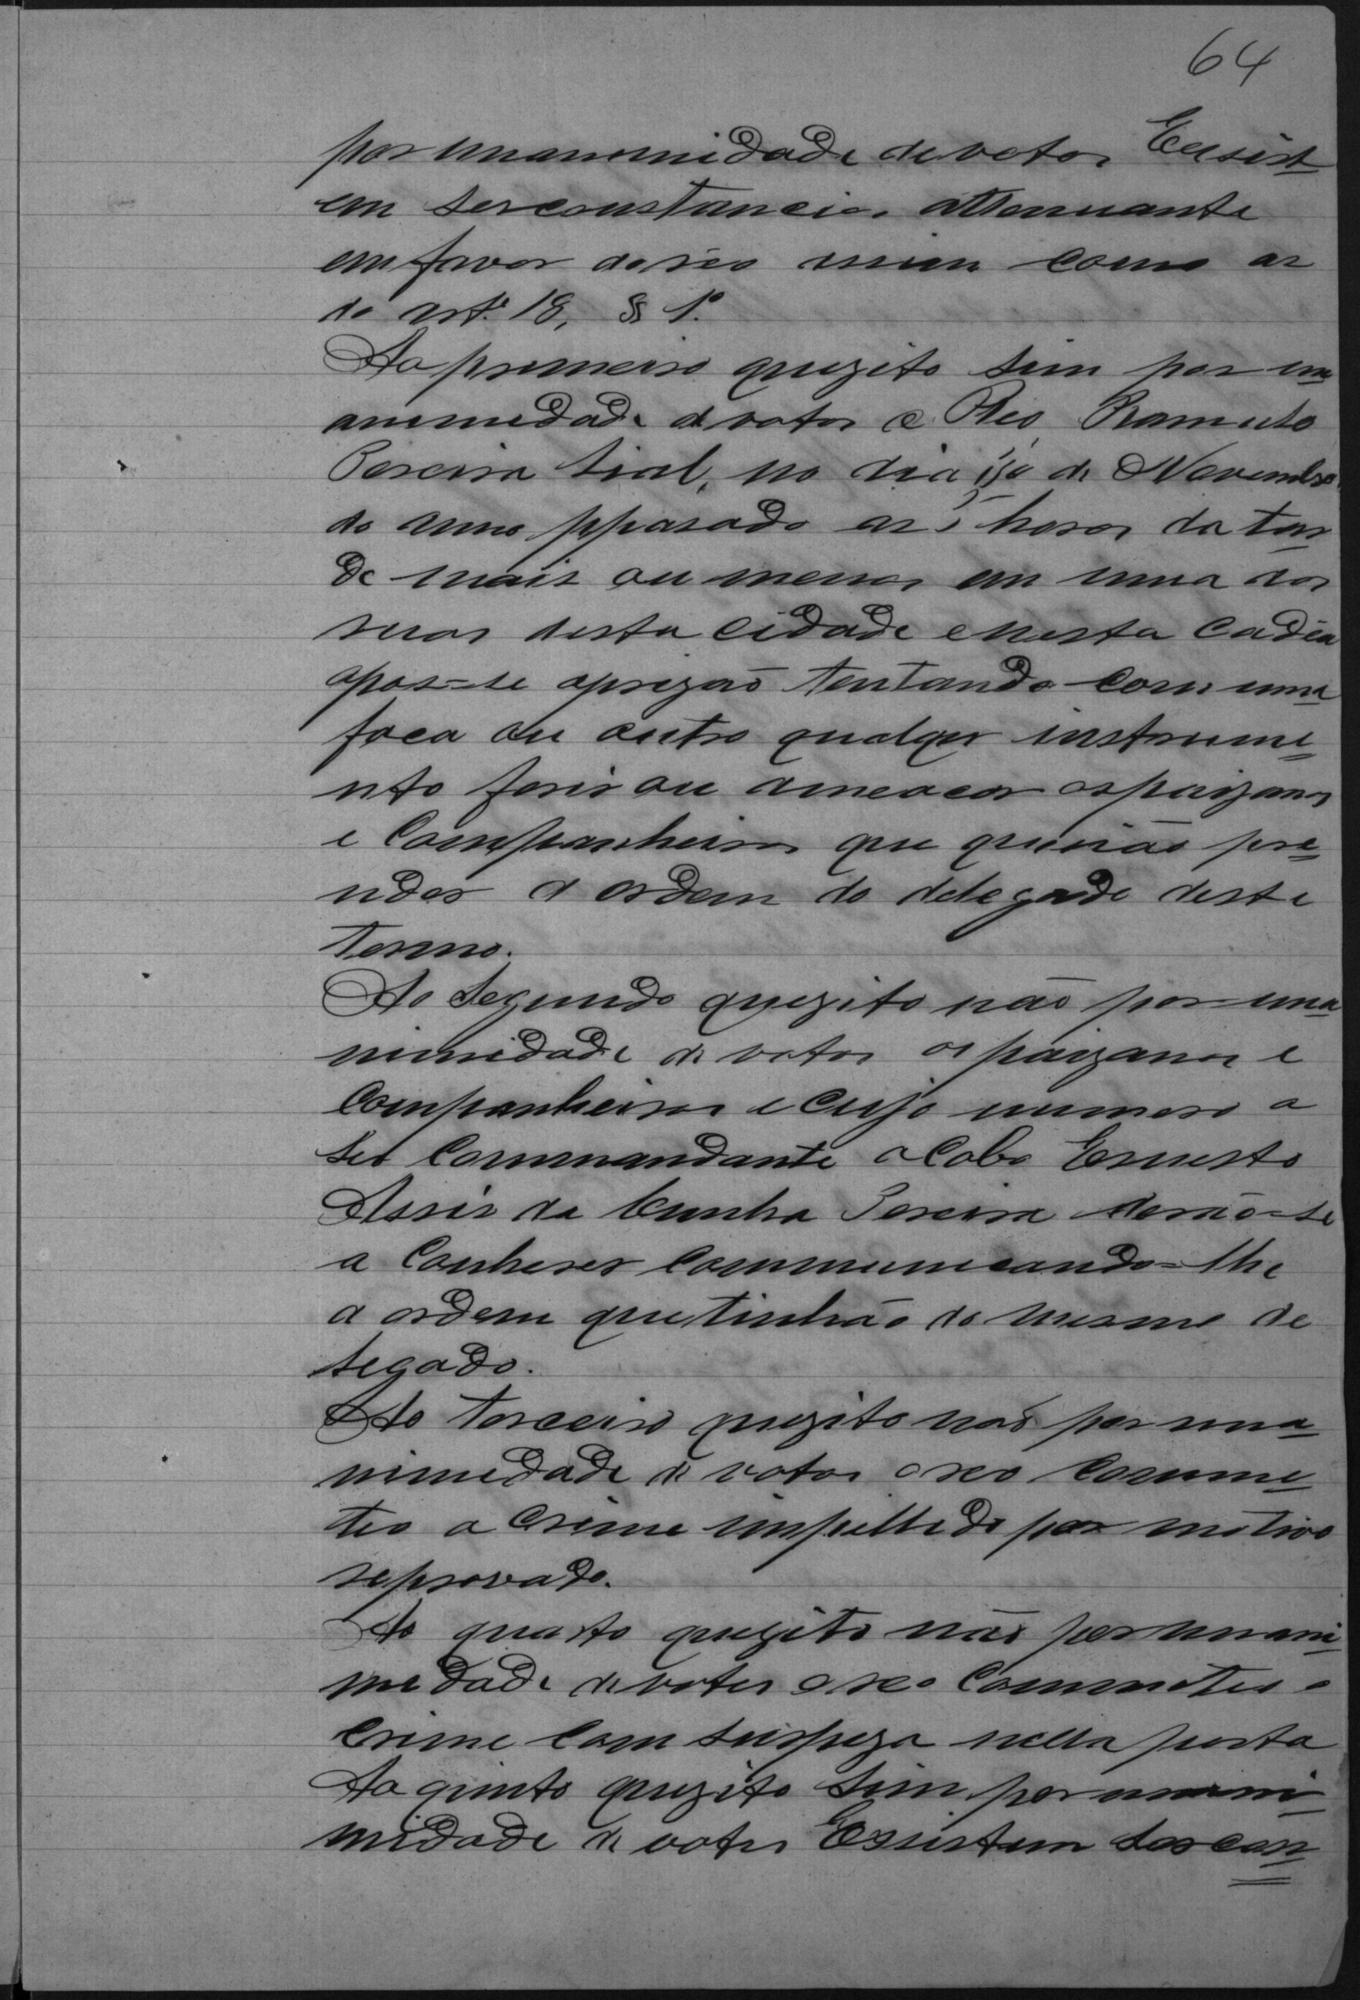 64
por unanimidade de votos Exsist
em sercunstancias attenuante
em favor do réo assim como as
do art.º 18, § 1.º
Ao primeiro quezito sim por un
animedade de votos o Reo Ramulo
Pereira Lial, no dia de Novembro
do anno ppasado as 5 horas da tar
de mais ou menos em uma das
ruas desta cidade e nesta cadêa
opos-se aprizaõ tentando com uma
faca ou outro qualqer instrume
nto ferir ou ameacar os paizanos
e Companheiros que queriaõ pre
nder a ordem do delegado deste
termo.
Ao Segundo quezito não por una
nimidade de votos os paizanos e
Companheiros e cujo numero a
seu Commandante o Cabo Ernesto
Assis da Cunha Pereira derão-se
a Conheser communicando-lhe
a ordem que tinhão do mesmo de
legado.
Ao terceiro quezito não por una
nimidade de votos o reo comme
teo o crime impellido por motivo
reprovado.
Ao quarto quezito não por unani
medade de votos o reo Commeteo o
crime com surpeza
Ao quinto quezito sim por unani
midade de votos Exsistem sercon